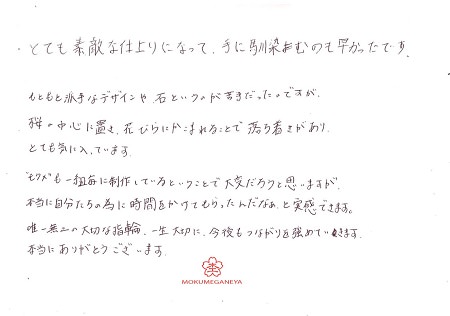 とても素敵な仕上りになって、手に馴染むのも早かったです。
もともと派手なデザインや、石というのが苦手だったのですが、
桜の中心に置き、花びらにかこまれることで落ち着きがあり、
とても気に入っています。
"モクメ"も一組毎に制作しているということで大変だろうと思いますが、
本当に自分たちの為に時間をかけてもらったんだなぁ、と実感できます。
唯一無二の大切な指輪、一生大切に、今後もつながりを強めていきます。
本当にありがとうございます。
MOKUMEGANEYA